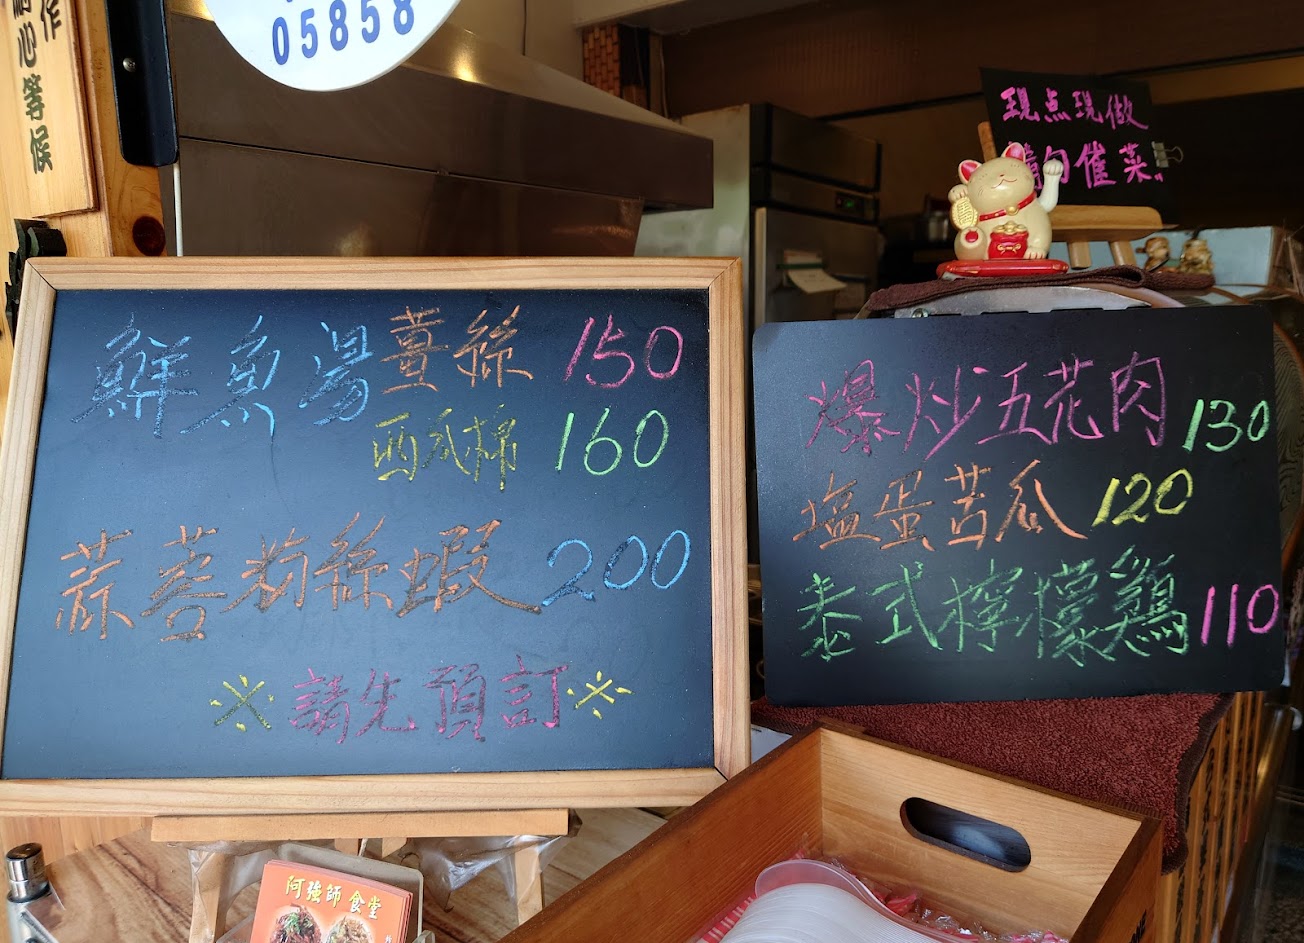 作
耐心等候
05858
現点現做
請勿催菜
鮮魚湯薑絲 150
西瓜棉 160
蒜蓉粉絲蝦 200
※請先預訂※
爆炒五花肉 130
塩蛋苦瓜 120
泰式檸檬鶏 110
阿強師 食堂